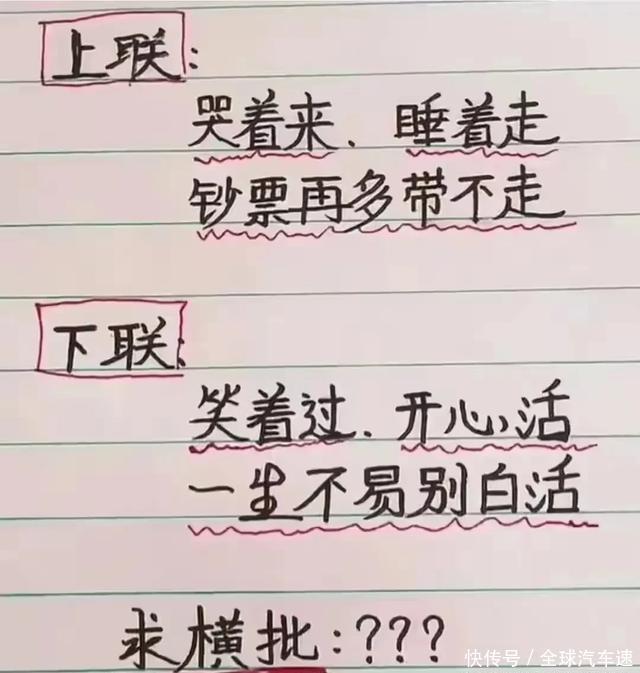 上联:
哭着来、睡着走
钞票再多带不走
下联:
笑着过、开心活
一生不易别白活
求横批:???
快传号/全球汽车速